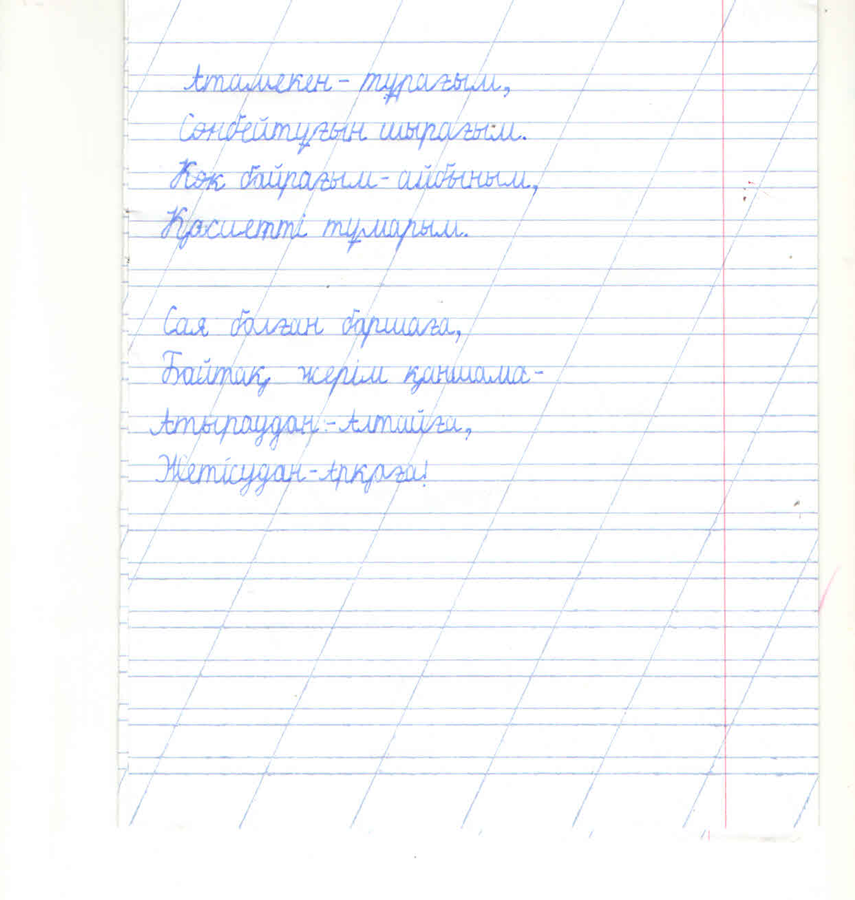 Атамекен - тұрағым,
Сөнбейтұғын шырағым.
Көк байрағым - айбыным,
Қасиетті тұмарым.
Сая болған баршаға,
Байтақ жерім қаншама -
Атыраудан - Алтайға,
Жетісудан - Арқаға!